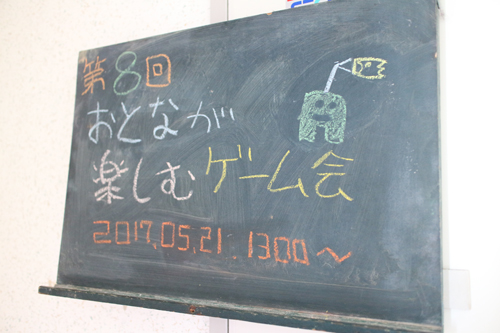 第8回
おとなが
楽しむゲーム会
2017.05.21. 1300〜